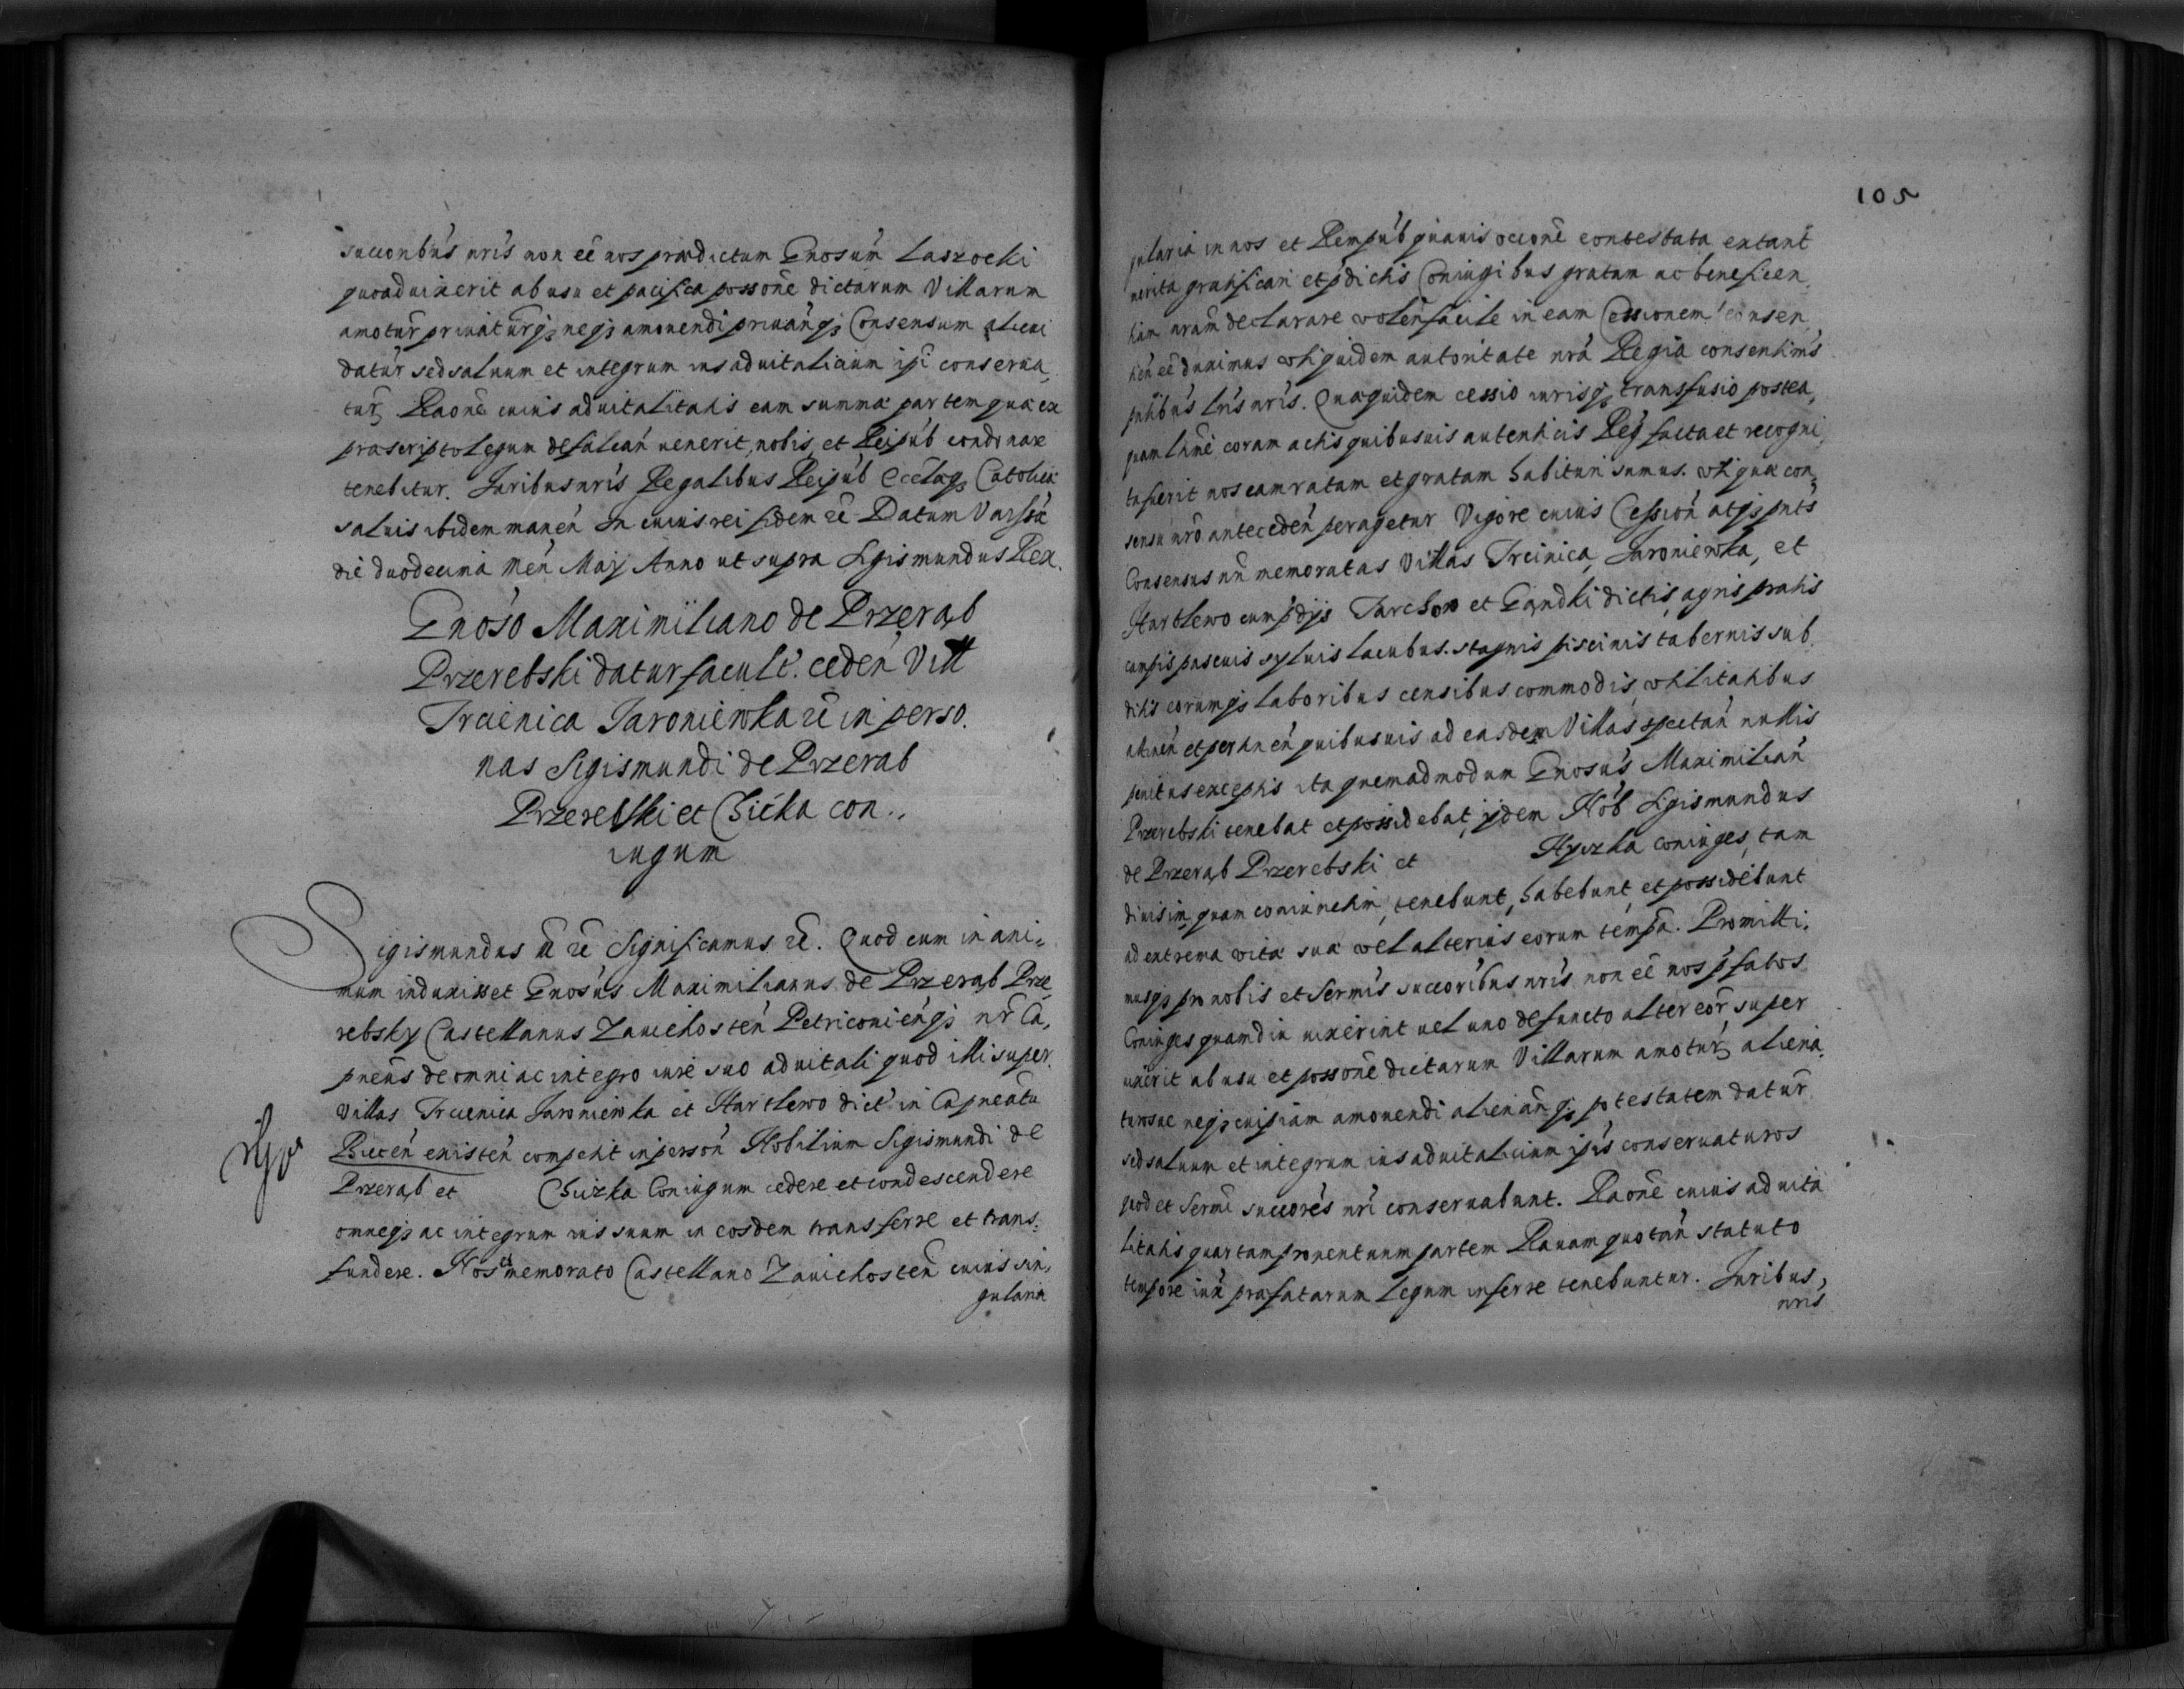 succonbus nris non eē nos praedictum Gnosum Laszocki
quoad uixerit ab usu et pacifica possone dictarum Villarum
amotur priuaturqz neqz amouendi priuanqz Consensum alicui
datur sed saluum et integrum ius aduitalicium ipi conserua,
tur, Raone cuius aduitalitatis eam summa partem qua ex
praescripto legum defalcan uenerit, nobis et Reipub condonare
tenebitur. Juribus nris Regalibus Reipub Ecclaeqz Catolica
saluis ibidem manen In cuius rei fidem rē Datum Varssa
die duodecima men Maij Anno ut supra Sigismundus Rex.
Gnoso Maximiliano de Przerąb
Przerebski datur facult. ceden Vill
Trcienica Jaroniewka rē in perso.
nas Sigismundi de Przerab
Przerebski et Chicka con..
iugum
Sigismundus rē Significamus rē. Quod cum in ani=
mum induxisset Gnosus Maximilianus de Przerąb Prze,
rebsky Castellanus Zauichosten Petriconienqz nr Ca,
pneus de omni ac integro iure suo aduitali quod illi super
villas Trcienica Jaroniewka et Hartlewo dict in Capneatu
Biecen existen competit in person Nobilium Sigismundi de
Przerąb et Chizka Coniugum cedere et condescendere
omneqz ac integrum ius suum in eosdem transferre et trans:
fundere. Nos memorato Castellano Zauichosten cuius sin,
gularia
105
gularia in nos et Rempub quauis occone contestata extant
merita gratificari et pdictis Coniugibus gratam ac beneficen
tiam nram declarare volen facile in eam Cessionem consen
tien eē duximus vti quidem autoritate nra Regia consentimus
pntibus lris nris. Qua quidem cessio iurisqz transfusio postea,
quam lnme coram actis quibusuis autenticis Reg facta et recogni
ta fuerit nos eam ratam et gratam habituri sumus. vti qua con,
sensu nro anteceden peragetur Vigore cuius Cession atqz pnts
Consensus nri memoratas Villas Trcinica, Jaroniewka, et
Hartlewo cum pdijs Tarchow et Gąndki dictis, agris pratis
campis pascuis syluis lacubus. stagnis piscinis tabernis sub
ditis eorumqz laboribus censibus commodis, vtilitatibus
attinen et pertinen quibusuis ad easdem Villas spectan nullis
penitus exceptis ita quemadmodum Gnosus Maximilian
Przerebski tenebat et possidebat, ijdem Nob Sigismundus
de Przerąb Przerebski et Hyczka coniuges, tam
diuisim, quam coniunctim, tenebunt, habebunt, et possidebunt
ad extrema vita sua vel alterius eorum tempa. Promitti.
musqz pro nobis et Sermis succoribus nris non eē nos pfatos
Coniuges quamdiu uixerint uel uno defuncto alter eor super
uixerit ab usu et possone dictarum Villarum amotur, aliena,
turosue neqz cuipiam amouendi alienanqz potestatem datur
sed saluum et integrum ius aduitalicium ipis conseruaturos
quod et Sermi succores nri conseruabunt. Raone cuius aduita
litatis quartam prouentuum partem Rauam quotan statuto
tempore iux prafatarum legum inferre tenebuntur. Juribus,
nris